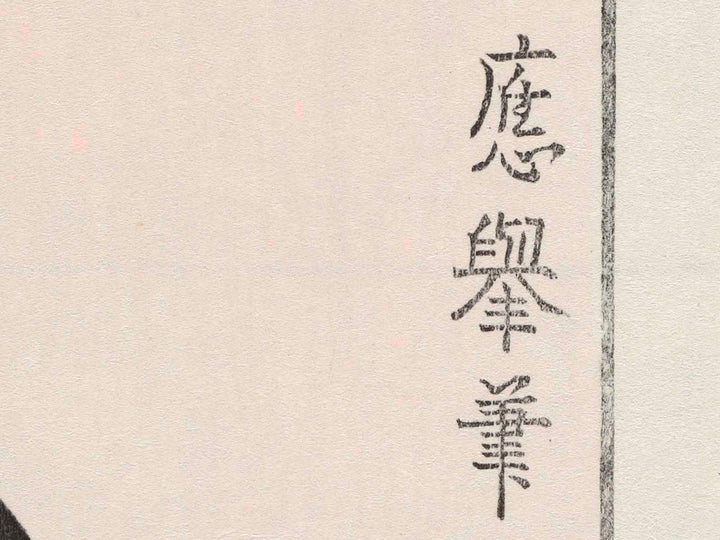 應擧筆